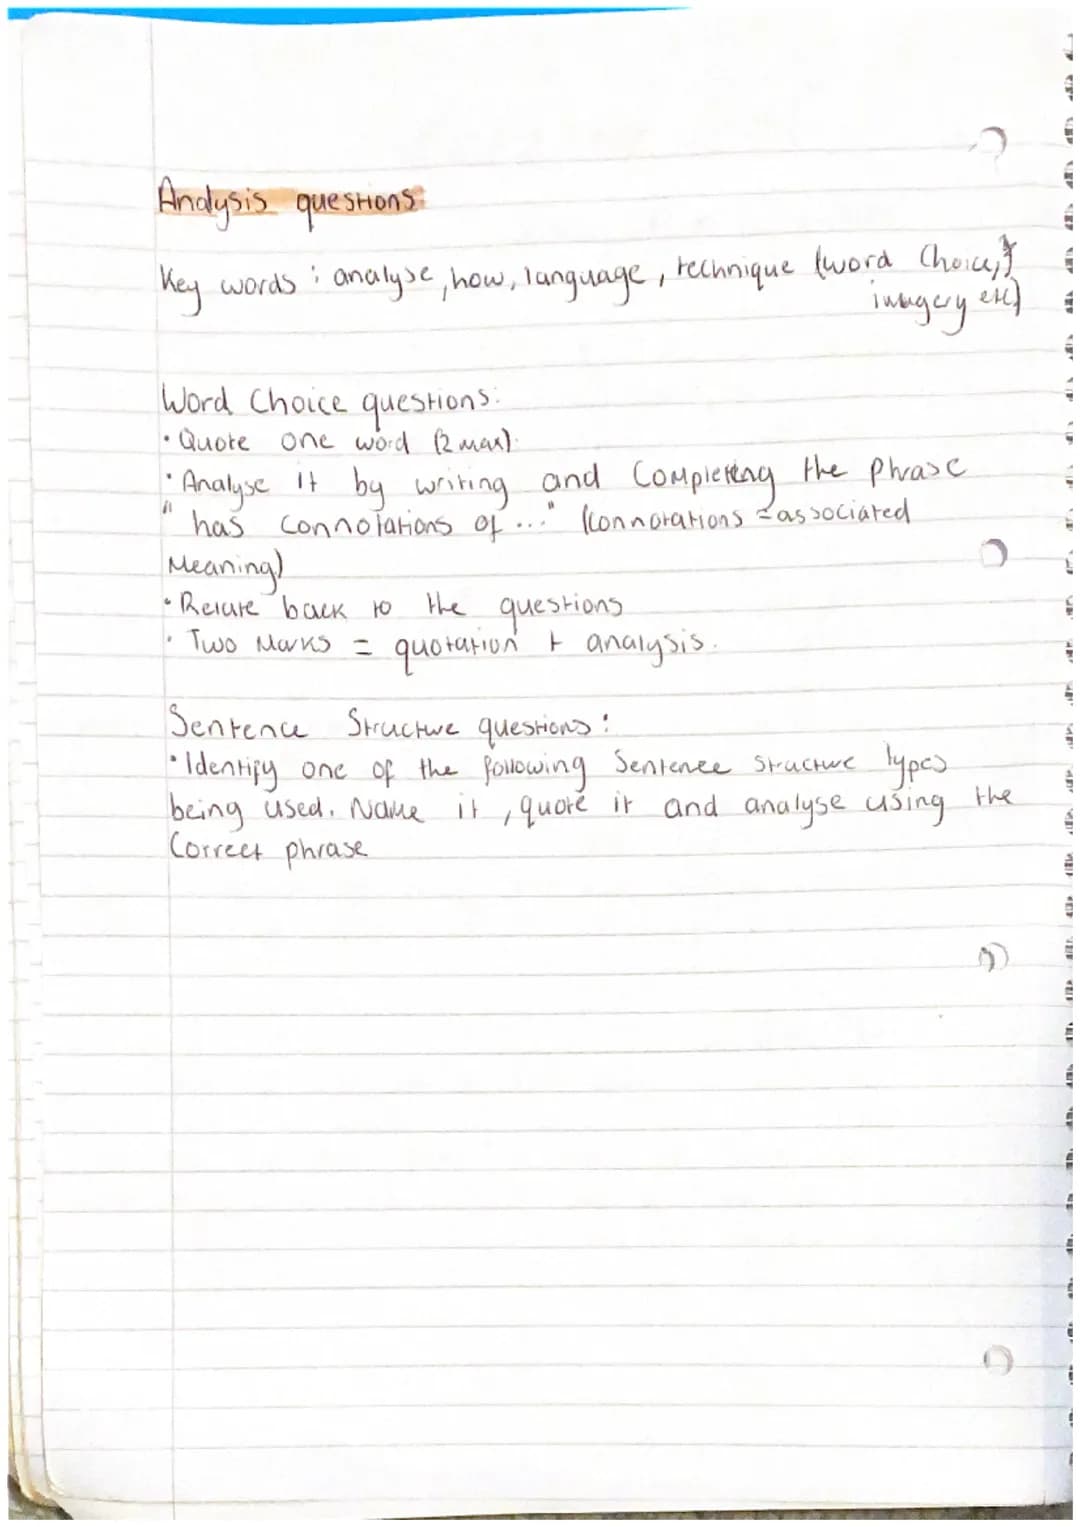 Analysis questions
Key words : analyse, how, language, technique (word Choice,
imagery etc)
Word Choice questions:
• Quote one word (2 max).
• Analyse it by writing and Completeing the phrase
"has connotations of ..." (connotations = associated
Meaning)
• Relate back to the questions
• Two Marks = quotation + analysis.
Sentence Structure questions:
• Identify one of the following Sentence structure types
being used. Name it, quote it and analyse using the
Correct phrase